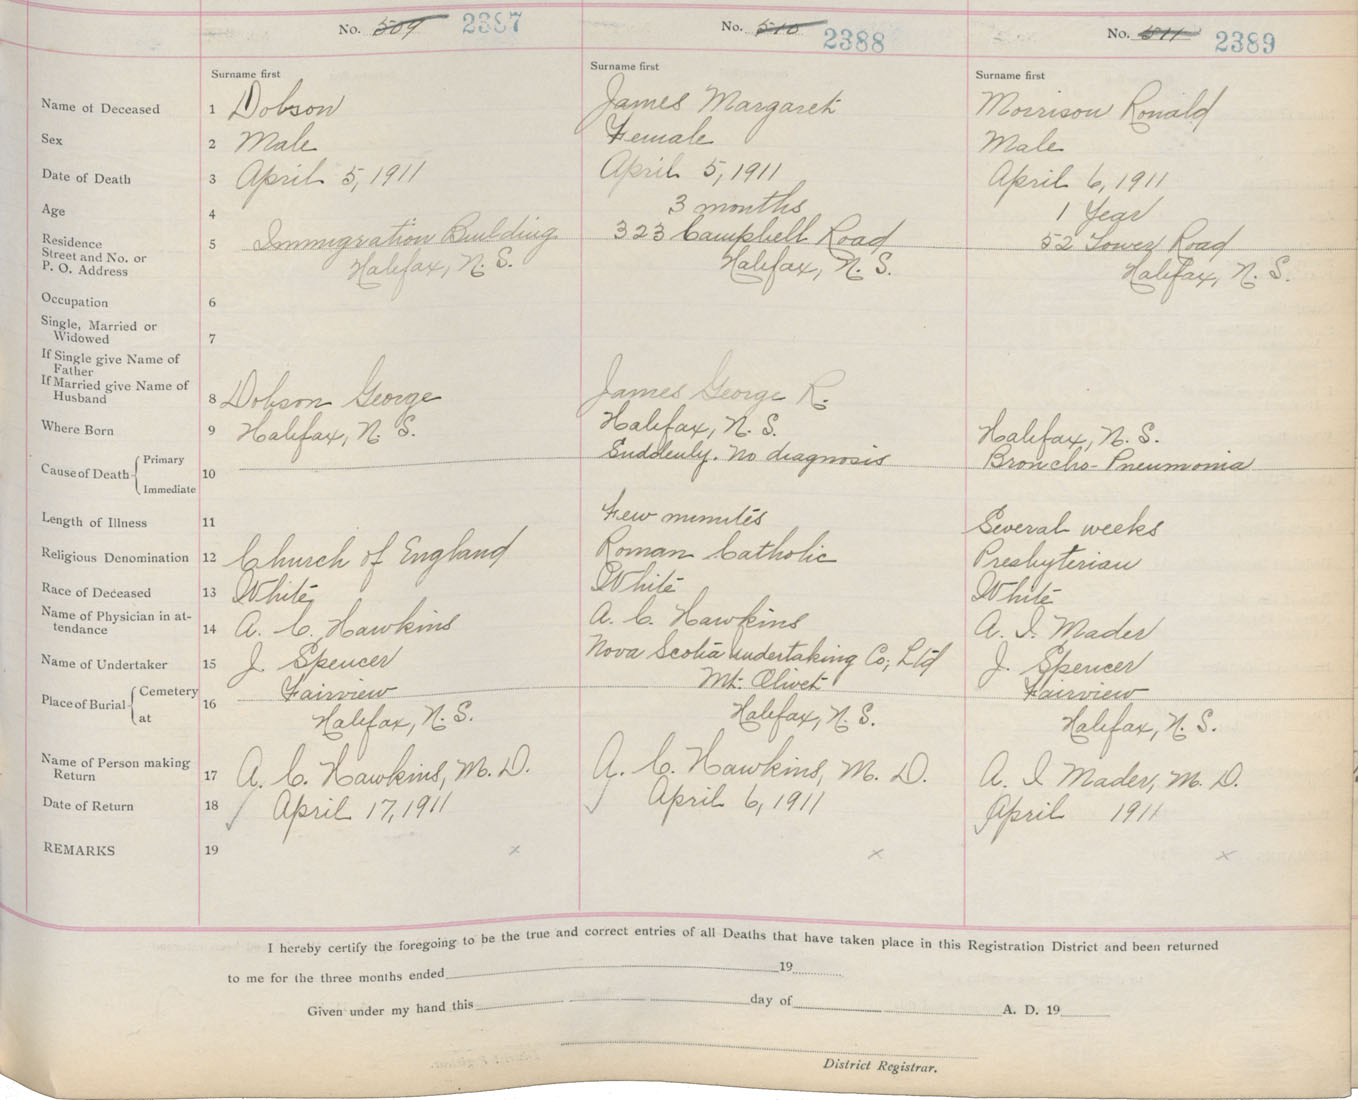 No. 509 2387
No. 510 2388
No. 511 2389
Surname first
Surname first
Surname first
Name of Deceased 1 Dobson James Margaret Morrison Ronald
Sex 2 Male Female Male
Date of Death 3 April 5, 1911 April 5, 1911 April 6, 1911
Age 4 3 months 1 Year
Residence
Street and No. or
P. O. Address
5 Immigration Building 323 Campbell Road 52 Tower Road
Halifax, N. S. Halifax, N. S. Halifax, N. S.
Occupation 6
Single, Married or
Widowed 7
If Single give Name of
Father
If Married give Name of
Husband
8 Dobson George James George R.
Where Born 9 Halifax, N. S. Halifax, N. S. Halifax, N. S.
Cause of Death Primary
Immediate
10 Suddenly. No diagnosis Broncho-Pneumonia
Length of Illness 11 Few minutes Several weeks
Religious Denomination 12 Church of England Roman Catholic Presbyterian
Race of Deceased 13 White White White
Name of Physician in at-
tendance 14 A. C. Hawkins A. C. Hawkins A. I. Mader
Name of Undertaker 15 J. Spencer Nova Scotia Undertaking Co, Ltd J. Spencer
Place of Burial Cemetery
at
16 Fairview Mt. Olivet Fairview
Halifax, N. S. Halifax, N. S. Halifax, N. S.
Name of Person making
Return 17 A. C. Hawkins, M. D. A. C. Hawkins, M. D. A. I Mader, M. D.
Date of Return 18 April 17, 1911 April 6, 1911 April 1911
REMARKS 19 x x x
I hereby certify the foregoing to be the true and correct entries of all Deaths that have taken place in this Registration District and been returned
to me for the three months ended 19
Given under my hand this day of A. D. 19
District Registrar.